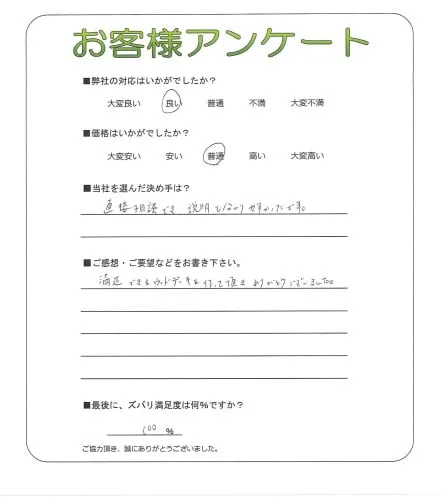 お客様アンケート
■弊社の対応はいかがでしたか?
大変良い 良い 普通 不満 大変不満
■価格はいかがでしたか?
大変安い 安い 普通 高い 大変高い
■当社を選んだ決め手は?
直接相談でき 説明も分かりやすかったです。
■ご感想・ご要望などをお書き下さい。
満足できるウッドデッキを作って頂き ありがとうございました。
■最後に、ズバリ満足度は何%ですか?
100 %
ご協力頂き、誠にありがとうございました。